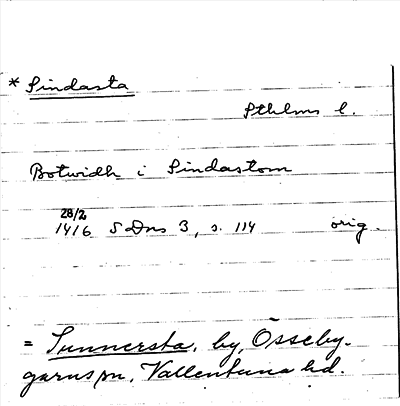 * Sindasta
Sthlms l.
Botwidh i Sindastom
28/2
1416 SDns 3, s. 114 orig.
= Sunnersta, by, Össeby-
garns sn, Vallentuna hd.